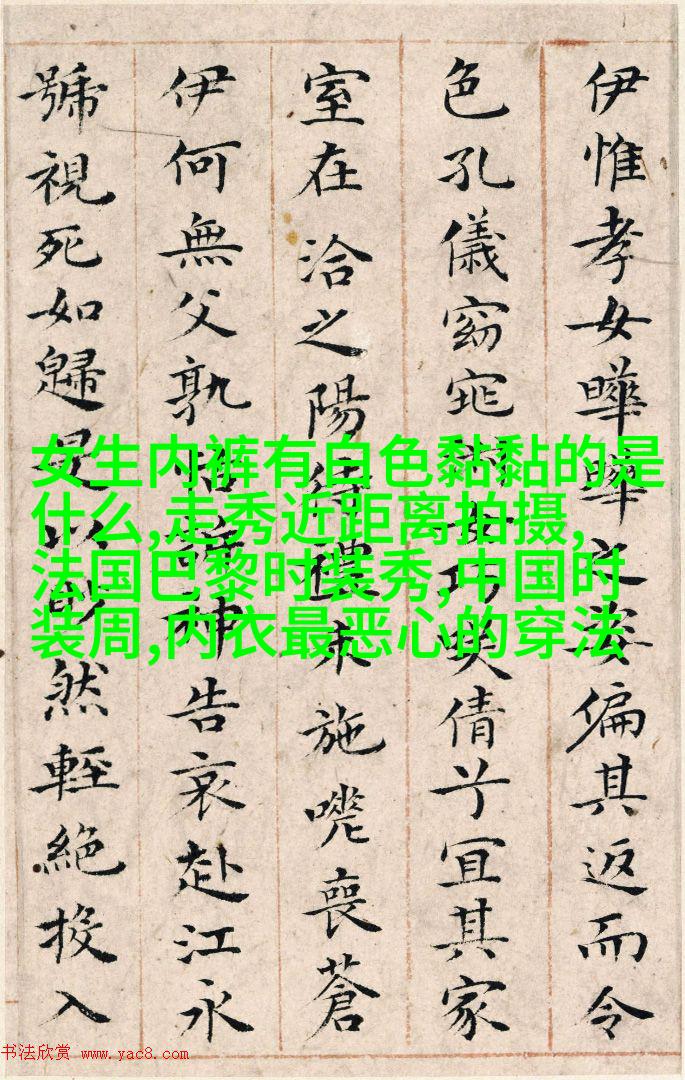 伊惟孝女曄曄之姿偏其返而令
色孔儀窈窕淑女巧笑倩兮宜其家
室在洽之陽待禮未施嗟喪蒼
伊何無父孰怙訴神告哀赴江永
號視死如歸是以眇然輕絕投入
女生内裤有白色黏黏的是
什么,走秀近距离拍摄,
法国巴黎时装秀,中国时
装周,内衣最恶心的穿法
书法欣赏 www.yac8.com